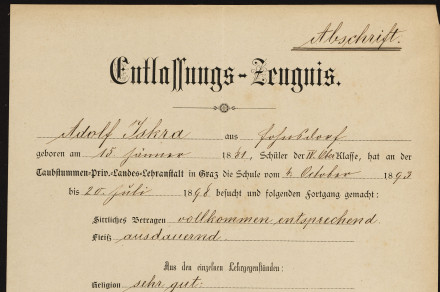 Abschrift.
Entlassungs-Zeugnis.
Adolf Iskra aus Fohnsdorf
geboren am 15 Jänner 1881, Schüler der IV. Klasse, hat an der
Taubstummen-Priv.-Landes-Lehranstalt in Graz die Schule vom 4. October 1893
bis 20. Juli 1898 besucht und folgenden Fortgang gemacht:
Sittliches Betragen vollkommen entsprechend.
Fleiß ausdauernd.
Aus den einzelnen Lehrgegenständen:
Religion sehr gut.